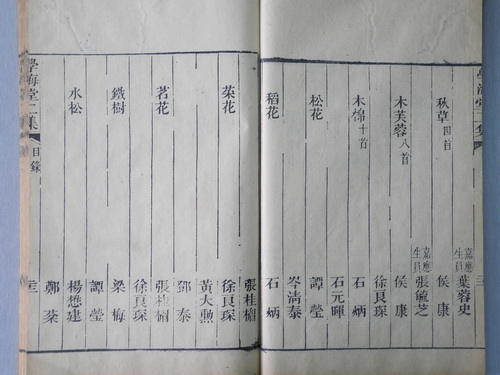 學海堂二集
嘉應生員 葉蓉史
秋草四首 侯康
嘉應生員 張毓芝
木芙蓉八首 侯康
徐良琛
木棉十首 石炳
石元暉
松花 譚瑩
岑清泰
稻花 石炳
張桂楣
菜花 徐良琛
黃大勲
鄧泰
茗花 張桂楣
徐良琛
鐵樹 梁梅
譚瑩
水松 楊懋建
鄭棻
學海堂二集 目錄